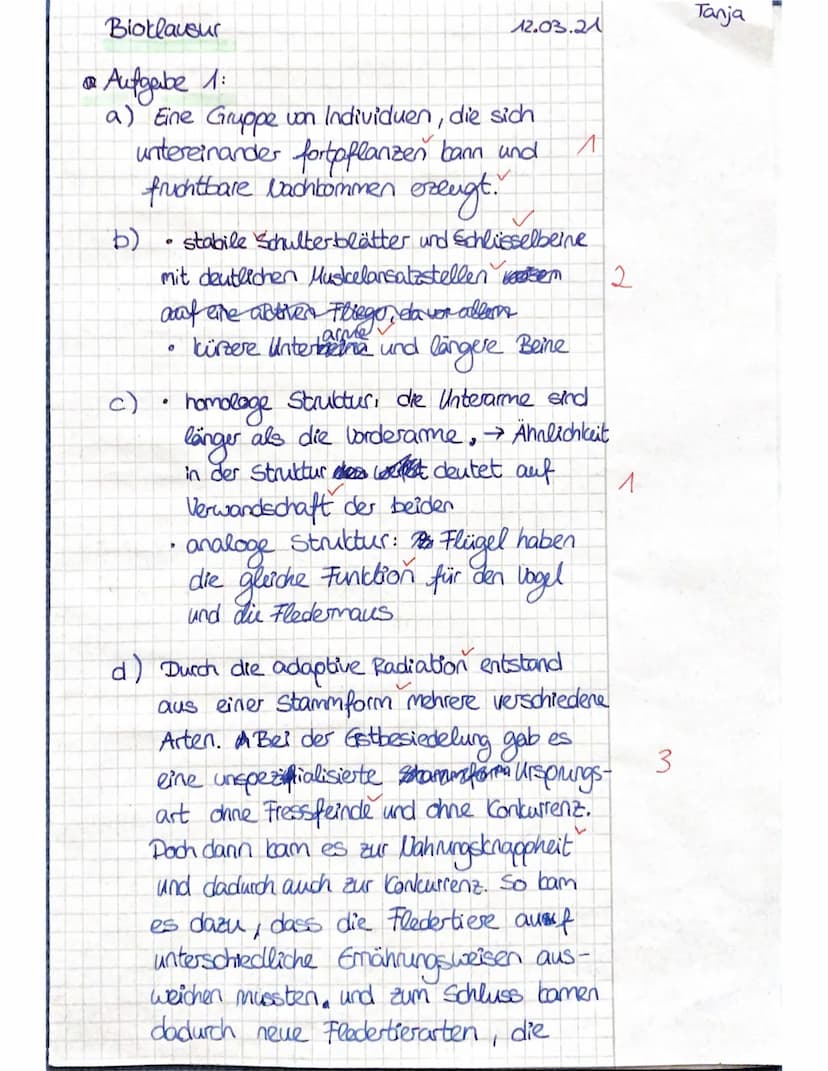 Tanja
Bioklausur 12.03.21
Aufgabe 1:
a) Eine Gruppe von Individuen, die sich
untereinander fortpflanzen kann und 1
fruchtbare Nachkommen erzeugt.
b) • stabile Schulterblätter und Schlüsselbeine
mit deutlichen Muskelansatzstellen 2
auf eine aktiven Flieger, da vor allem
• kürzere Unterarme und längere Beine
c) • homologe Struktur, die Unterarme sind
länger als die Vorderarme, → Ähnlichkeit
in der Struktur deutet auf 1
Verwandschaft der beiden
• analoge Struktur: Flügel haben
die gleiche Funktion für den Vogel
und die Fledermaus
d) Durch die adaptive Radiation entstand
aus einer Stammform mehrere verschiedene
Arten. Bei der Erstbesiedelung gab es
eine unspezialisierte Ursprungs- 3
art ohne Fressfeinde und ohne Konkurrenz.
Doch dann kam es zur Nahrungsknappheit
und dadurch auch zur Konkurrenz. So kam
es dazu, dass die Fledertiere auf
unterschiedliche Ernährungsweisen aus-
weichen mussten, und zum Schluss kamen
dadurch neue Fledertierarten, die